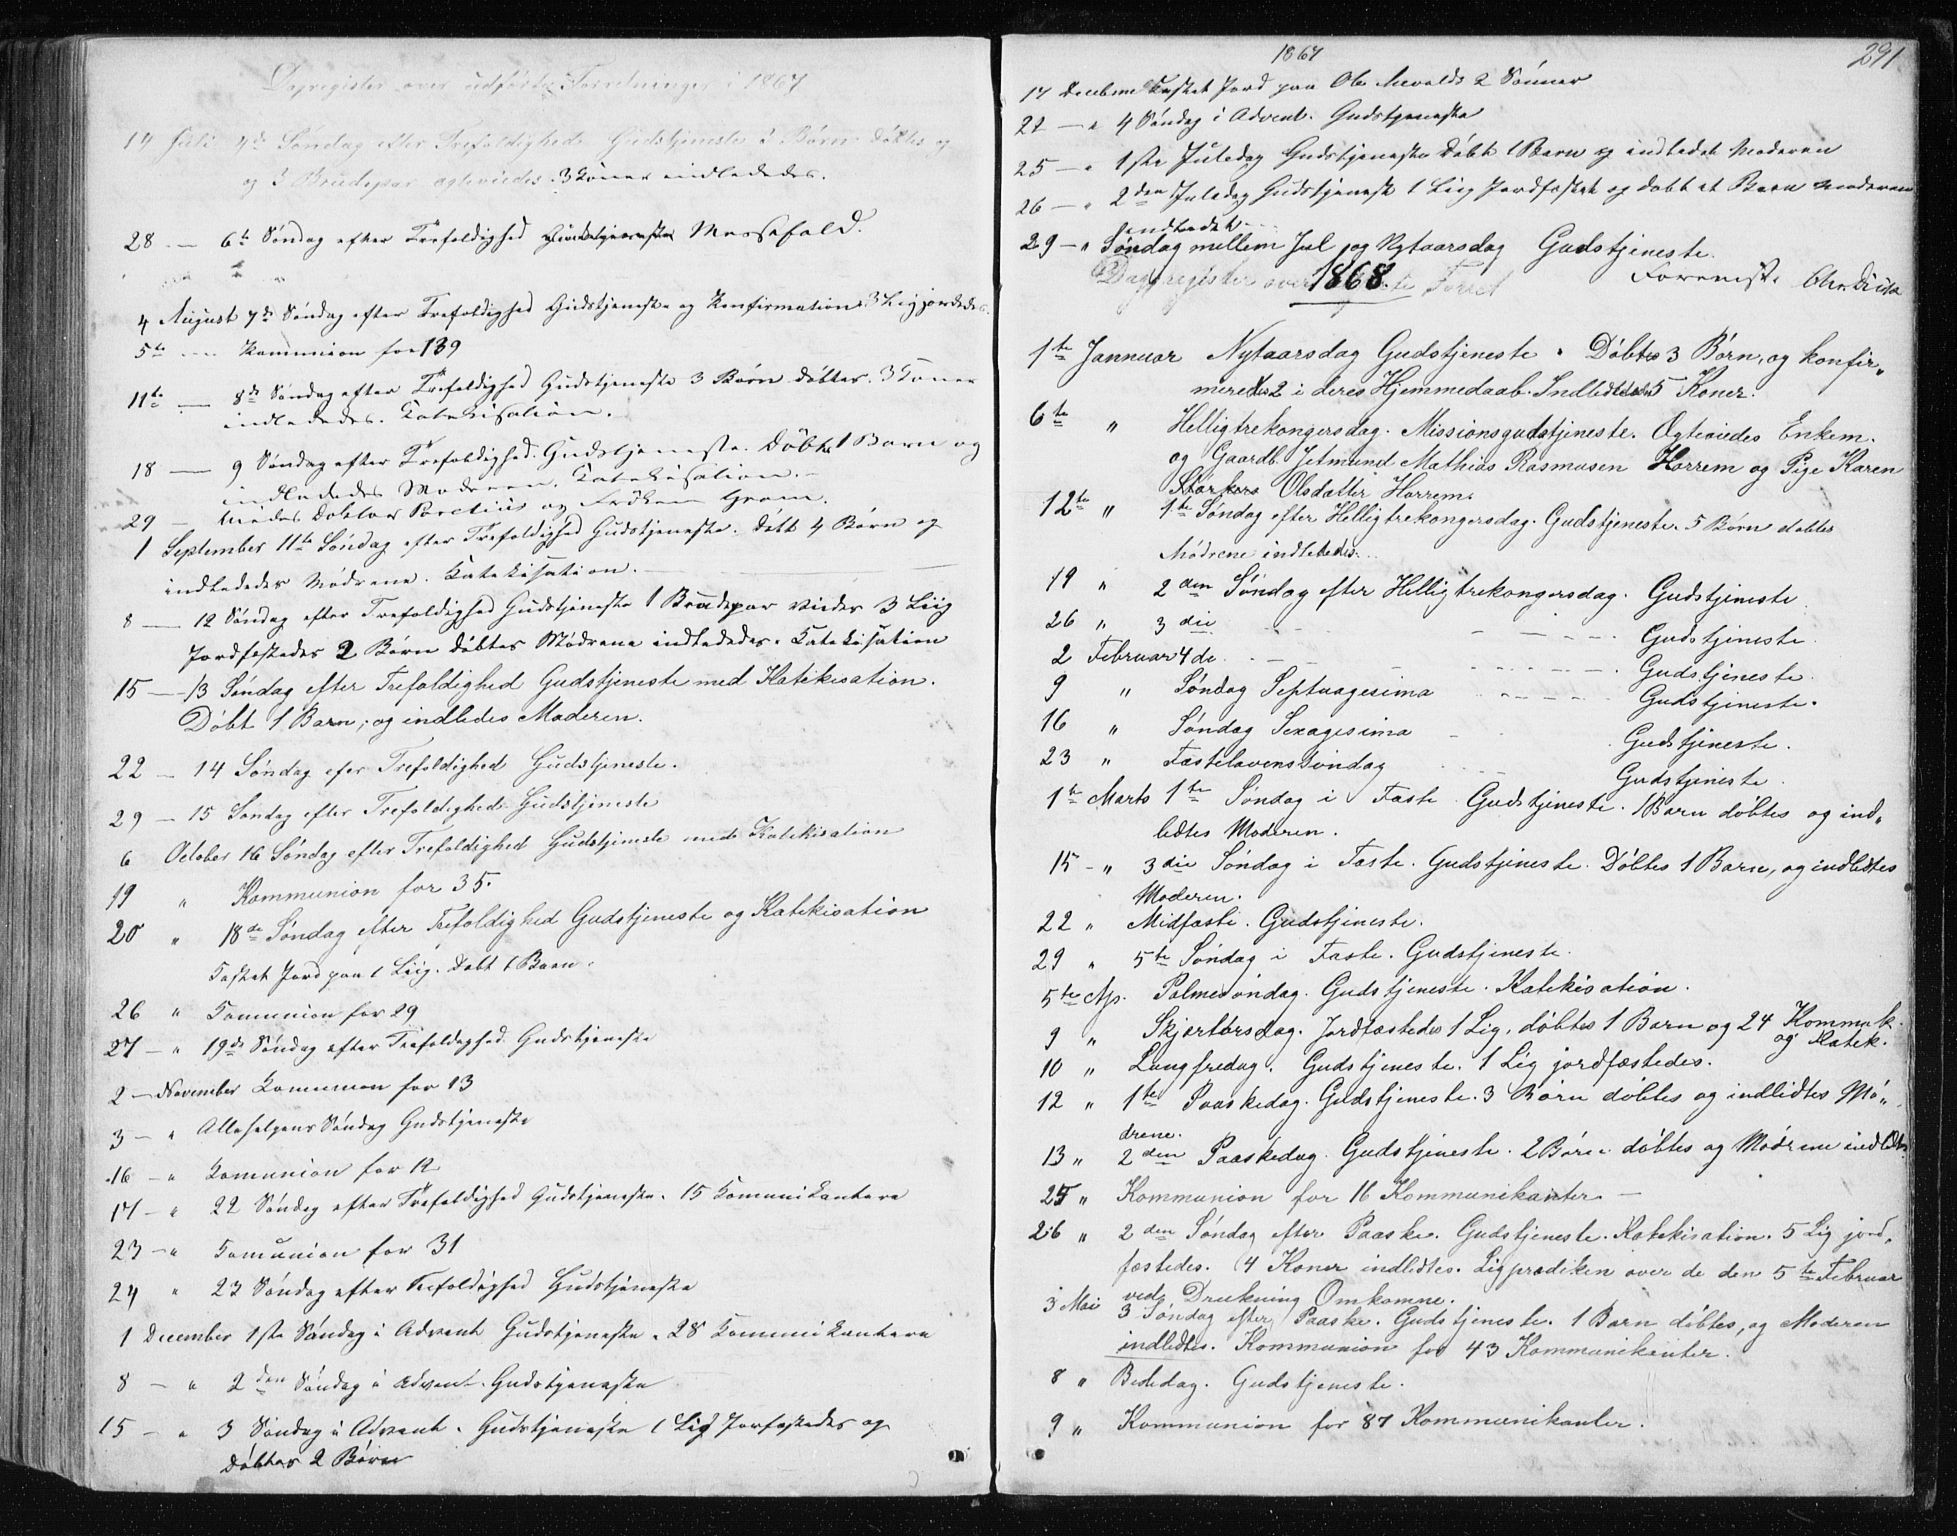 Dagregister over udførte Forretninger i 1867
14 Juli 4de Søndag efter Trefoldighed Gudstjeneste 3 Børn døbtes og
og 3 Brudepar egteviedes. 3 Koner indlededes.
28 — 6te Søndag efter Trefoldighed Gudstjeneste Messefald.
4 August 7de Søndag efter Trefoldighed Gudstjeneste og Konfirmation 3 Lig jordedes.
5te — Kommunion for 139
11te — 8de Søndag efter Trefoldighed Gudstjeneste 3 Børn døbtes. 3 Koner
indlededes. Katekisation.
18 — 9 Søndag efter Trefoldighed. Gudstjeneste. Døbt 1 Barn og
indlededes Moderen. Katekisation.
29 — Viedes Doktor og Frøken Gram.
1 September 11te Søndag efter Trefoldighed Gudstjeneste. Døbt 4 Børn og
indlededes Mødrene. Katekisation.
8 — 12 Søndag efter Trefoldighed Gudstjeneste 1 Brudepar viedes 3 Liig
Jordfæstedes 2 Børn døbtes Mødrene indlededes. Katekisation
15 — 13 Søndag efter Trefoldighed Gudstjeneste med Katekisation.
Døbt 1 Barn, og indledes Moderen.
22 — 14 Søndag efter Trefoldighed Gudstjeneste.
29 — 15 Søndag efter Trefoldighed Gudstjeneste
6 October 16 Søndag efter Trefoldighed Gudstjeneste med Katekisation
19 " Kommunion for 35.
20 " 18de Søndag efter Trefoldighed Gudstjeneste og Katekisation
Kastet Jord paa 1 Liig. Døbt 1 Barn.
26 " Comunion for 29
27 — " 19de Søndag efter Trefoldighed Gudstjeneste
2 — November Comunion for 13
3 — " Allehelgens Søndag Gudstjeneste
16 — " Comunion for 12
17 — " 22 Søndag efter Trefoldighed Gudstjeneste. 15 Communikantere
23 — " Comunion for 31
24 " 23 Søndag efter Trefoldighed Gudstjeneste
1 December 1ste Søndag i Advent Gudstjeneste. 28 Communikantere
8 — " 2den Søndag i Advent. Gudstjeneste
15 — " 3 Søndag i Advent. Gudstjeneste 1 Lig Jorfæstedes og
Døbtes 2 Børn
1867
291
17 December Kastet Jord paa Ole 2 Sønner
22 — " 4 Søndag i Advent. Gudstjeneste
25 — " 1ste Juledag Gudstjeneste Døbt 1 Barn og indledet Moderen
26 — " 2den Juledag Gudstjeneste 1 Liig Jordfæstet og døbt et Barn Moderen
indledet.
29 — " Søndag mellem Jul og Nytaarsdag Gudstjeneste.
Dagregister over 1868 Forret
1te Jannuar Nytaarsdag Gudstjeneste. Døbtes 3 Børn, og konfir„
meredes 2 i deres Hjemmedaab. Indlededes 5 Koner.
6te " Helligtrekongersdag. Missionsgudstjeneste. Ægteviedes Enkem.
og Gaardb. Jetmund Mathias Rasmusen Horrem og Pige Karen
Olsdatter Horrem.
12te " 1te Søndag efter Helligtrekongersdag. Gudstjeneste. 5 Børn døbtes
Mødrene indlededes.
19 " 2den Søndag efter Helligtrekongersdag. Gudstjeneste
26 " 3die — Gudstjeneste
2 Februar 4de — Gudstjeneste.
9 " Søndag Septuagesima — Gudstjeneste.
16 " Søndag Sexagesima — Gudstjeneste.
23 " Fastelavenssøndag — Gudstjeneste.
1te Marts 1te Søndag i Faste Gudstjeneste. 1 Barn døbtes og ind„
ledtes Moderen.
15 — " 3die Søndag i Faste. Gudstjeneste. Døbtes 1 Barn, og indledtes
Moderen.
22 " Midfaste. Gudstjeneste.
29 " 5te Søndag i Faste. Gudstjeneste.
5te Ap. Palmesøndag. Gudstjeneste. Katekisation.
9 " Skjærtorsdag. Jordfæstedes 1 Lig, døbtes 1 Barn og 24 Kommuk.
og Katek.
10 " Langfredag. Gudstjeneste. 1 Lig jordfæstedes.
12 " 1te Paaskedag. Gudstjeneste. 3 Børn døbtes og indledtes Mø„
drene.
13 " 2den Paaskedag. Gudstjeneste. 2 Børn døbtes og Mødrene indledtes
25 " Kommunion for 16 Kommunikanter. —
26 " 2den Søndag efter Paaske. Gudstjeneste. Katekisation. 5 Lig jord„
fæstedes. 4 Koner indledtes. Ligprædiken over de den 5te Februar
ved Drukning Omkomne.
3 Mai 3 Søndag efter Paaske. Gudstjeneste. 1 Barn døbtes, og Moderen
indledtes. Kommunion for 43 Kommunikanter.
8 " Bededag. Gudstjeneste.
9 " Kommunion for 87 Kommunikanter.